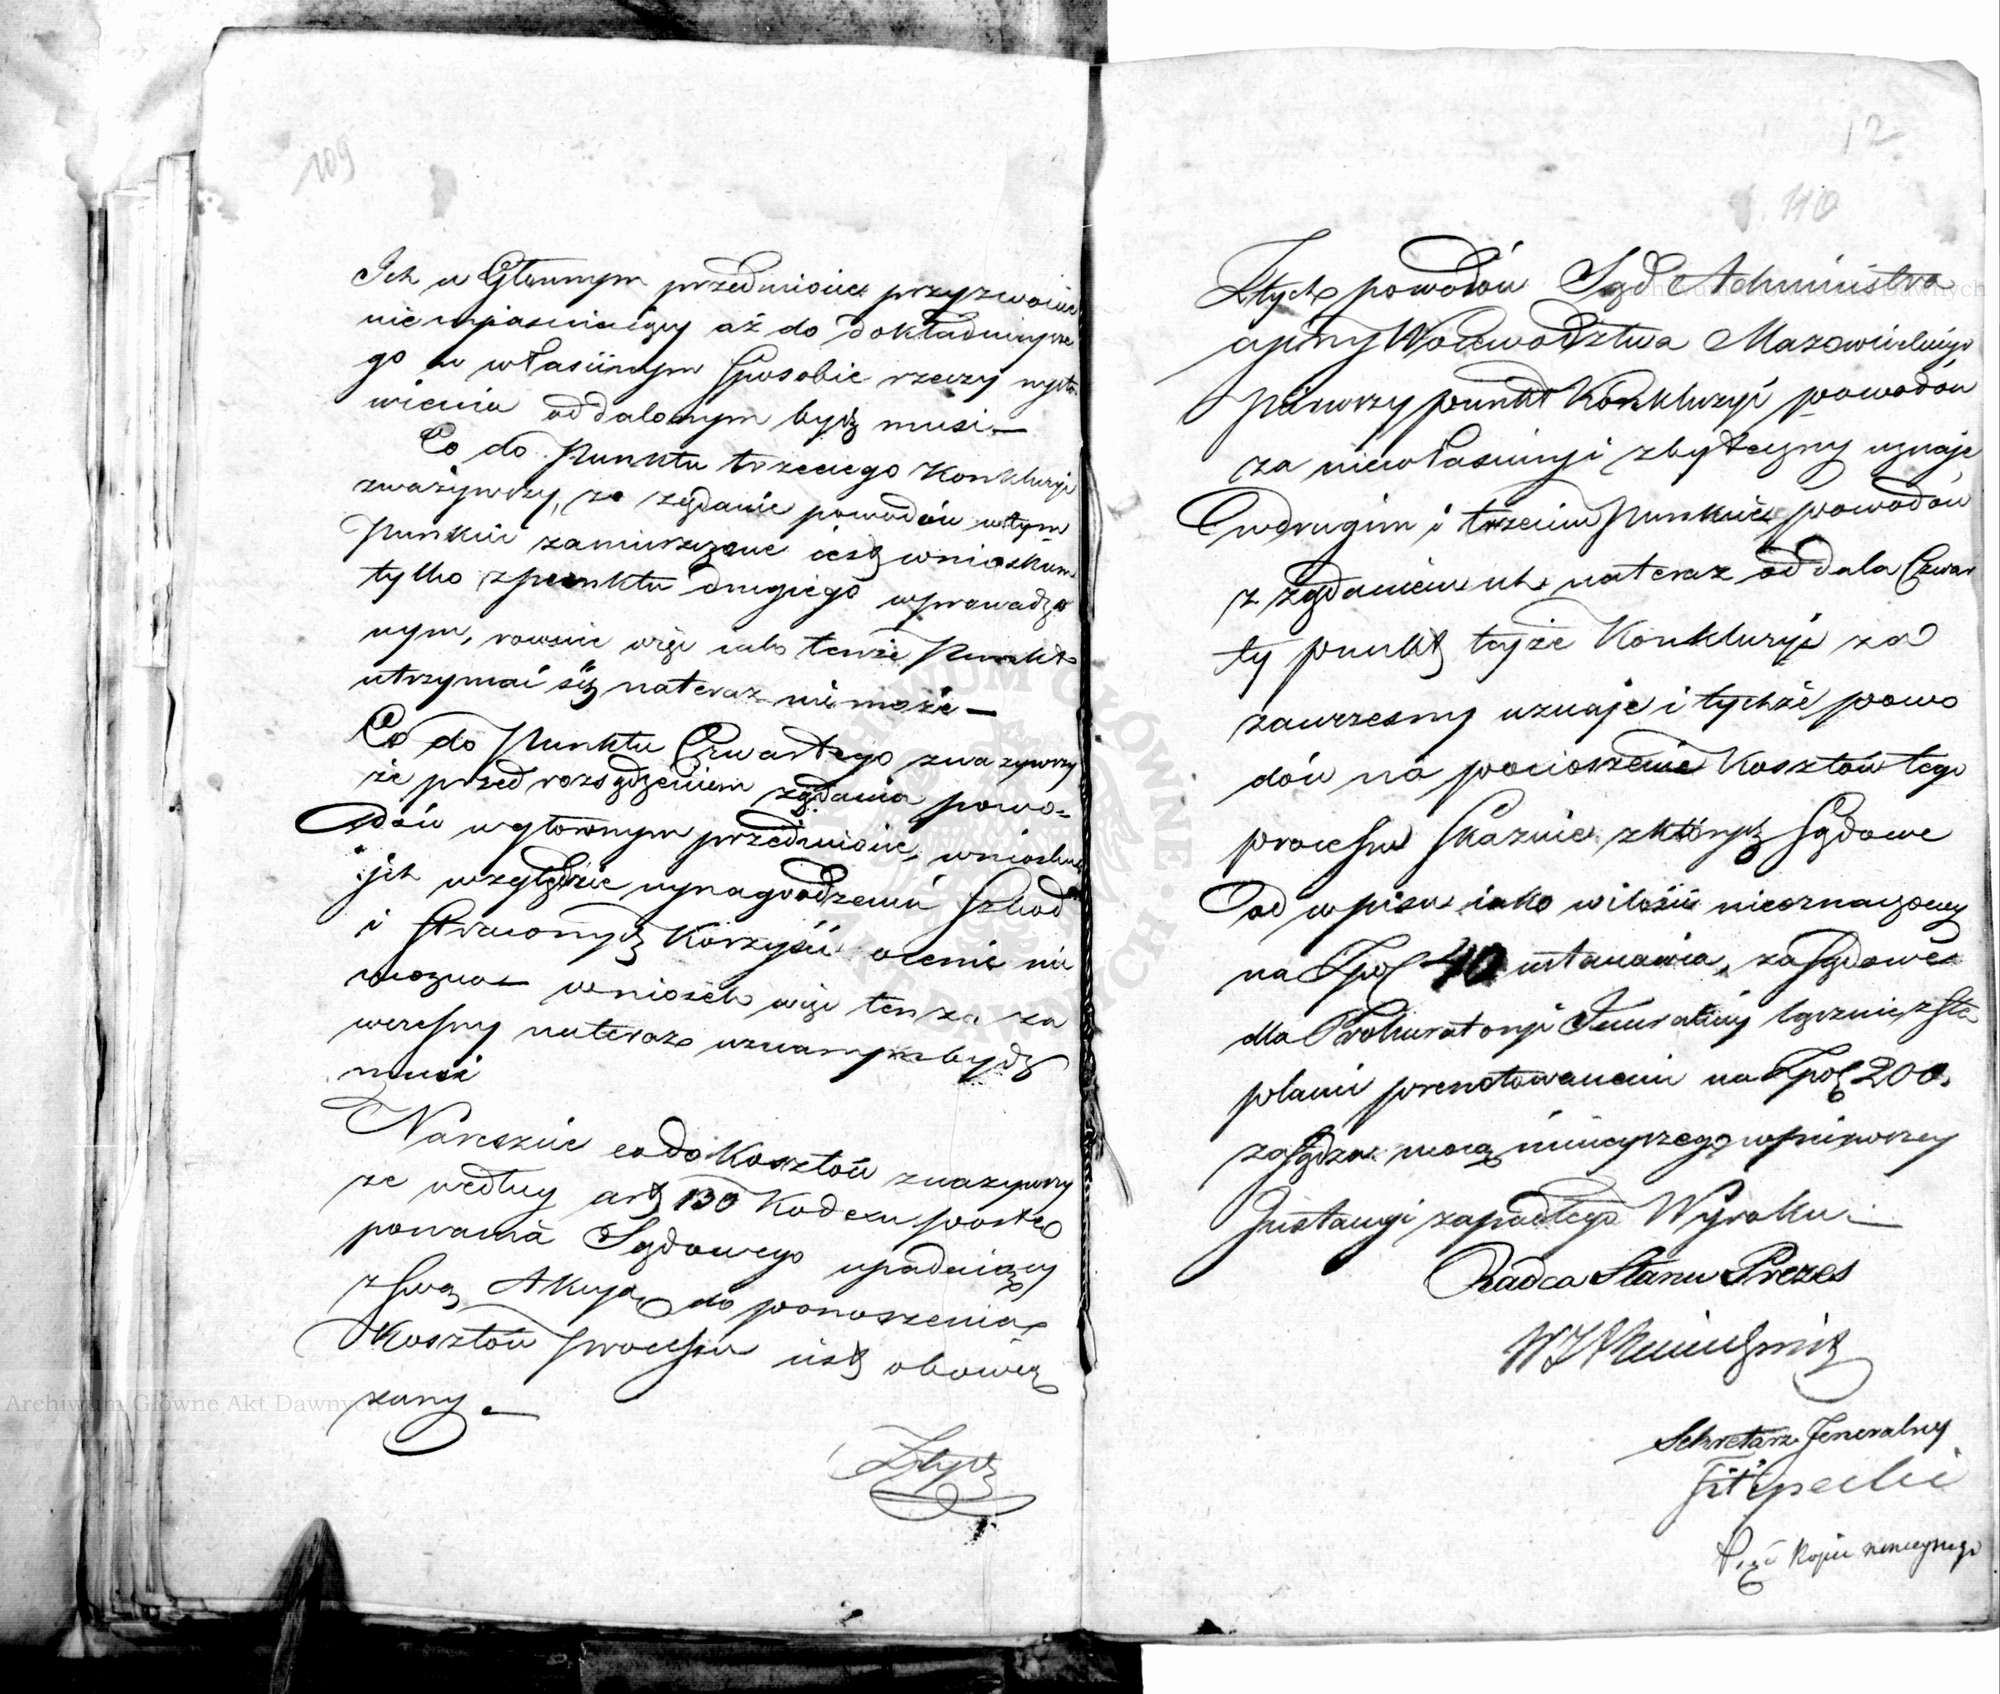 109
Ich w Głownym przedmiocie przyzwoicie
niewyiasniaiący aż do dokładnieysze
go w własciwym sposobie rzeczy wysta
wienia oddalonym bydź musi —
Co do Punktu trzeciego Konkluzyi
zważywszy, że żądanie powodów w tym
Punkcie zamieszczone iest wnioskiem
tylko z punktu drugiego wyprowadzo
nym, rownie więc iako tenże Punkt
utrzymać się nateraz nie może —
Co do Punktu Czwartego zważywszy
że przed rozsądzeniem żądania powo-
dów w głownym przedmiocie, wniosku
ich względzie wynagrodzenia szkod
i straconych Korzyści ocenić nie
można — wniosek więc ten za za
wczesny nateraz uznanym bydź
musi
Nareszcie co do Kosztów zważywszy
że według art 130 Kodexu postę
powania Sądowego upadaiący
z swą Akcyą do ponoszenia
Kosztów processu iest obowią
zany. —
Z tych
12
110
Z tych powodów Sąd Administra
cyiny Woiewodztwa Mazowieckiego
pierwszy punkt Konkluzyi powodów
za niewłasciwy i zbyteczny uznaje
w drugim i trzecim Punkcie powodów
z żądaniem ich nateraz oddala Czwar
ty punkt tejże Konkluzyi za
zawczesny uznaje i tychże powo
dów na poniesienie Kosztów tego
processu skazuie z których sądowe
od wpisu iako w ilości nieoznaczoney
na Zpol 40 ustanawia, zasądowe
dla Prokuratoryi Jeneralney łącznie z ste
plami prenotowanemi na Zpol 200.
zasądza mocą ninieyszego w pierwszey
Instancyi zapadłego Wyroku. —
Radca Stanu Prezes
Sekretarz Jeneralny
Kopii niniejszego
ARCHIWUM GŁÓWNE AKT DAWNYCH
Archiwum Główne Akt Dawnych